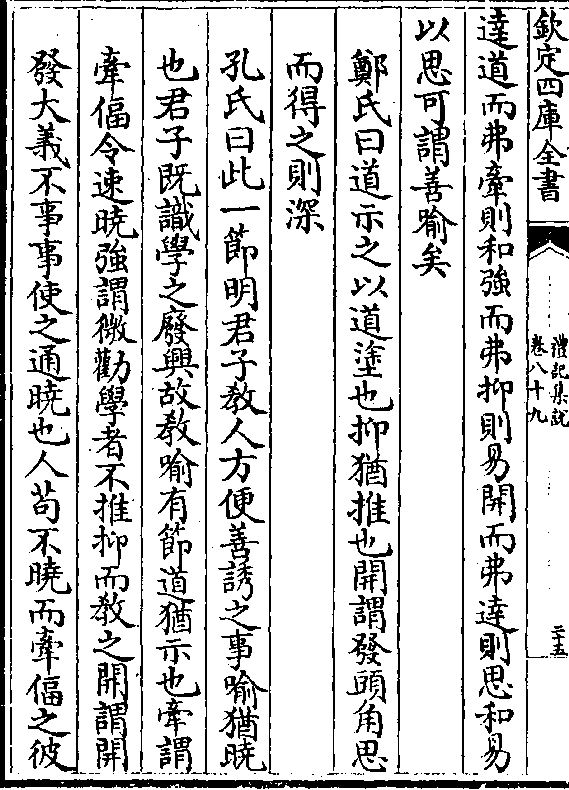 欽定四庫全書
禮記集說
卷八十九
二十五
達道而弗牽則和強而弗抑則易開而弗達則思和易
以思可謂善喻矣
鄭氏曰道示之以道塗也抑猶推也開謂發頭角思
而得之則深
孔氏曰此一節明君子教人方便善誘之事喻猶曉
也君子既識學之廢興故教喻有節道猶示也牽謂
牽偪令速曉強謂微勸學者不推抑而教之開謂開
發大義不事事使之通曉也人苟不曉而牽偪之彼